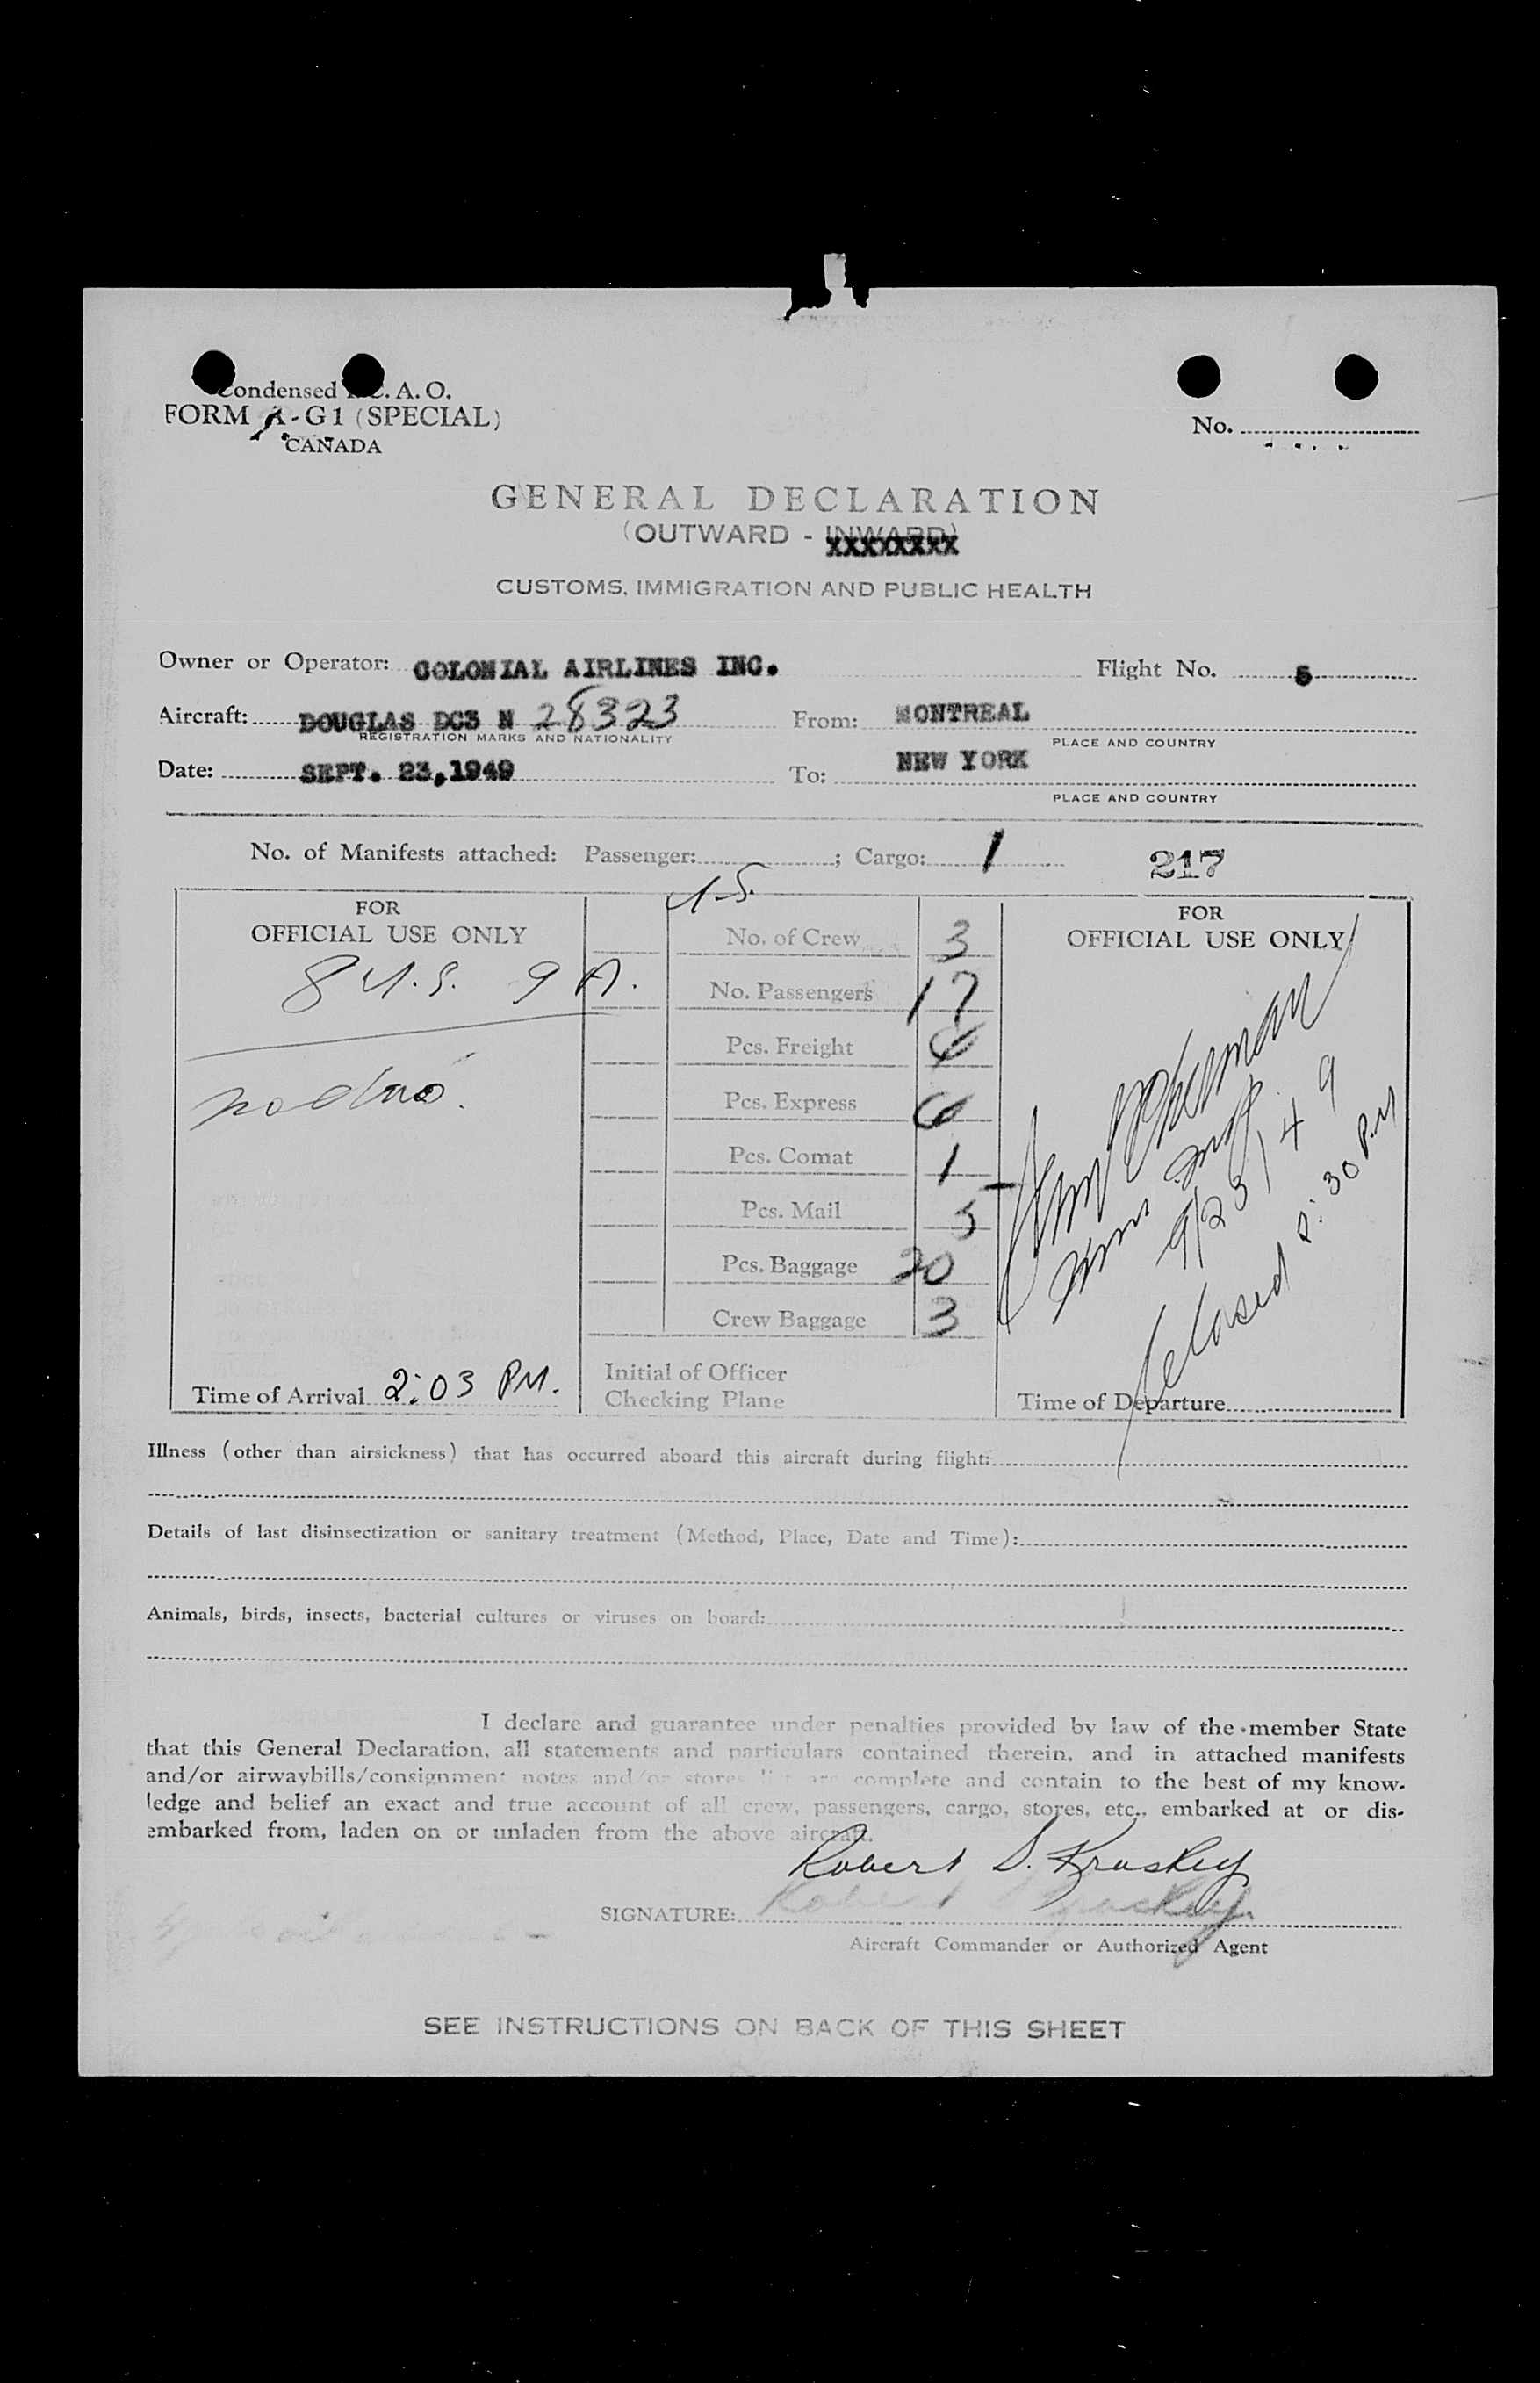 Condensed I. C. A. O.
FORM A-G1 (SPECIAL)
CANADA
No.
GENERAL DECLARATION
(OUTWARD - INWARD)
XXXXXXXX
CUSTOMS, IMMIGRATION AND PUBLIC HEALTH
Owner or Operator: COLONIAL AIRLINES INC. Flight No. 5
Aircraft: DOUGLAS DC3 N 28323 From: MONTREAL
REGISTRATION MARKS AND NATIONALITY PLACE AND COUNTRY
Date: SEPT. 23,1949 To: NEW YORK
PLACE AND COUNTRY
No. of Manifests attached: Passenger: ; Cargo: 1 217
U.S.
FOR
OFFICIAL USE ONLY
8 U.S. 9 A.
Time of Arrival 2:03 PM.
No. of Crew 3
No. Passengers 17
Pcs. Freight
Pcs. Express
Pcs. Comat 1
Pcs. Mail 5
Pcs. Baggage 20
Crew Baggage 3
Initial of Officer
Checking Plane
FOR
OFFICIAL USE ONLY
Sherman
Imm Insp.
9/23/49
released 2:30 PM
Time of Departure
Illness (other than airsickness) that has occurred aboard this aircraft during flight:
Details of last disinsectization or sanitary treatment (Method, Place, Date and Time):
Animals, birds, insects, bacterial cultures or viruses on board:
I declare and guarantee under penalties provided by law of the member State
that this General Declaration, all statements and particulars contained therein, and in attached manifests
and/or airwaybills/consignment notes and/or stores list are complete and contain to the best of my know-
ledge and belief an exact and true account of all crew, passengers, cargo, stores, etc., embarked at or dis-
embarked from, laden on or unladen from the above aircraft.
Robert S. Kraskey
SIGNATURE:
Aircraft Commander or Authorized Agent
SEE INSTRUCTIONS ON BACK OF THIS SHEET